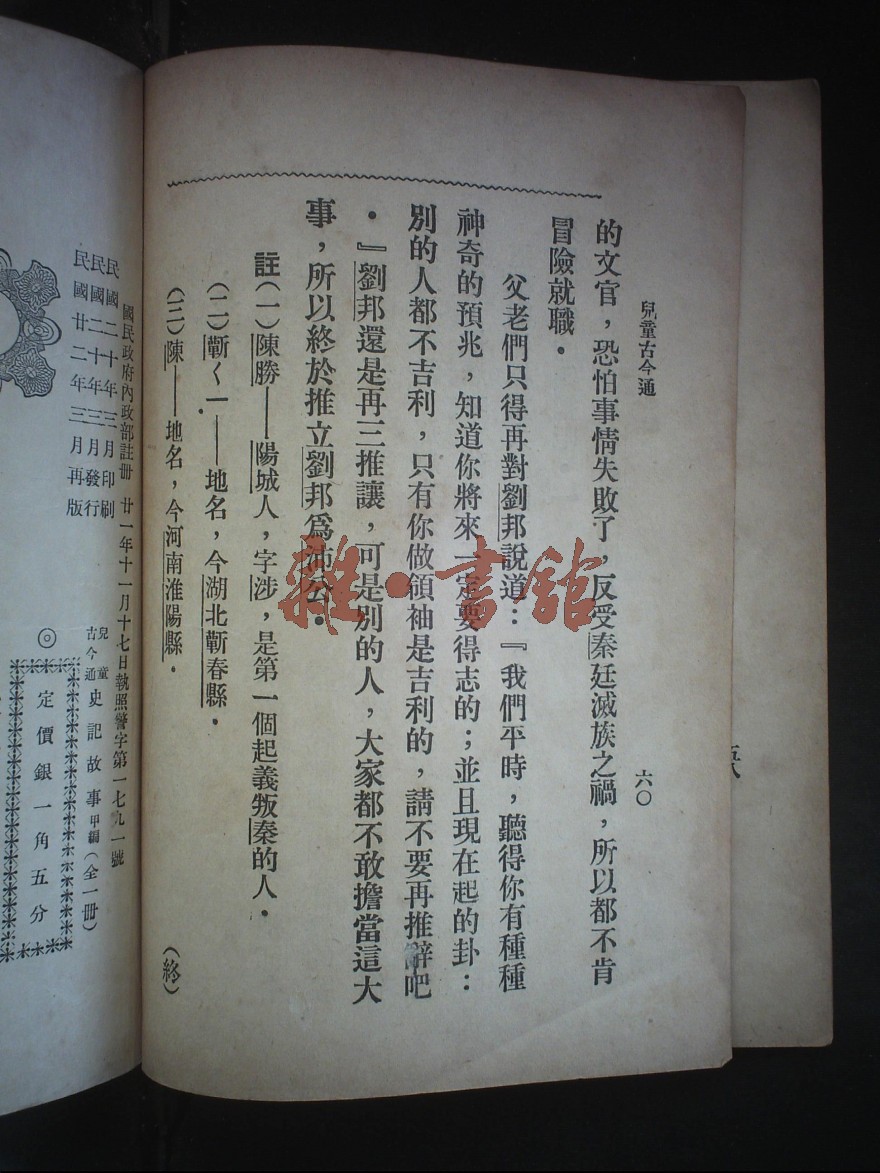 兒童古今通
六〇
的文官，恐怕事情失敗了，反受秦廷滅族之禍，所以都不肯
冒險就職．
父老們只得再對劉邦說道：『我們平時，聽得你有種種
神奇的預兆，知道你將來一定要得志的；並且現在起的卦：
別的人都不吉利，只有你做領袖是吉利的，請不要再推辭吧
．』劉邦還是再三推讓，可是別的人，大家都不敢擔當這大
事，所以終於推立劉邦爲沛公．
註（一）陳勝——陽城人，字涉，是第一個起義叛秦的人．
（二）蘄ㄑㄧ——地名，今湖北蘄春縣．
（三）陳——地名，今河南淮陽縣．
（終）
雜·書館
國民政府內政部註冊 廿一年十一月十七日執照警字第一七九一號
民國二十年三月印刷
民國二十年三月發行
民國廿二年三月再版
兒童古今通 史記故事 甲編（全一冊）
◎定價銀一角五分